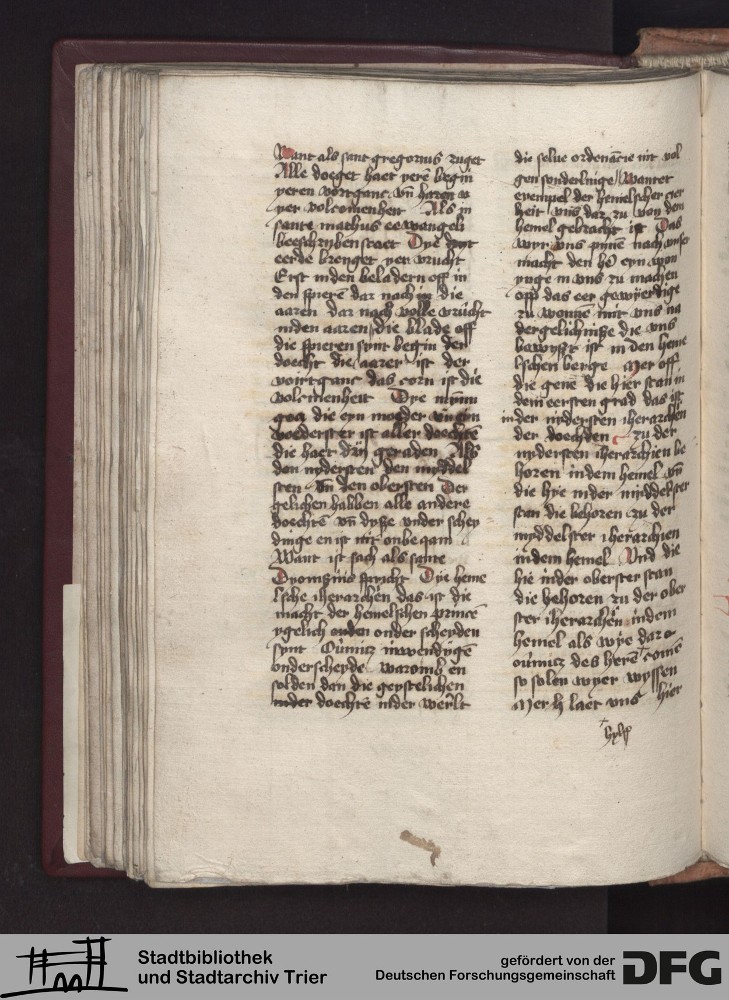 Want als sant gregorius zuget
Alle doeget haet yere begin
yeren vortganc vn̄ haren v
yer volcomenheit Als in
sante matheus eewangeli
beeschryben staet Dye dynt
eerde brenget yer vrucht
Erst in den beladern off in
den spieren̄ dar nach in die
aaren dar nach volle vrücht
in den aaren die blade off
die spieren synt begin der
doecht die aarer ist der
voirtganc das corn ist die
volcmenheit Dye mynn
goa die eyn moeder vn eyn
voederster ist aller doechte
die haet dry geraden Als
den nydersten den myddel
sten Vn den obersten Der
gelichen habben alle andere
doechtē vn dysse vnder schey
dinge en ist nit onbeqam
Want ist sach als sante
Dyonisius spricht Dye heme
lsche iherarchen das ist die
macht der hemelschen princē
ygelich onder scheyden
synt Oūmitz inwendygē
onderscheyde waromb en
solden dan die geystelichen
in der doechtē in der werlt
die selue ordenācie nit vol
gen sonderlinge Wanter
exempel der hemelscher cier
heit vns dar zu von dem
hemel gebracht ist Das
wyr vns pinē nach vnser
macht den he eyn won
ynge in vns zu machen
off das eer gewyerdige
zu wonne mit vns na
der gelichnisse die vns
bewyst ist in den heme
lschen berge Mer off
die gene die hier stan in
dem eersten grad das ist
in der nydersten iherarchen
der doechden zu der
nydersten iherarchien be
horen in dem hemel vn̄
die hye in der myddelster
stan die behoren zu der
myddelster iherarchien
in dem hemel Vnd die
hie in der oberster stan
die behoren zu der ober
ster iherarchen in dem
hemel als wye dar
oūmitz des herē comē
so solen wyer wyssen
Mer h laet vns hier
Stadtbibliothek
und Stadtarchiv Trier
gefördert von der
Deutschen Forschungsgemeinschaft
DFG